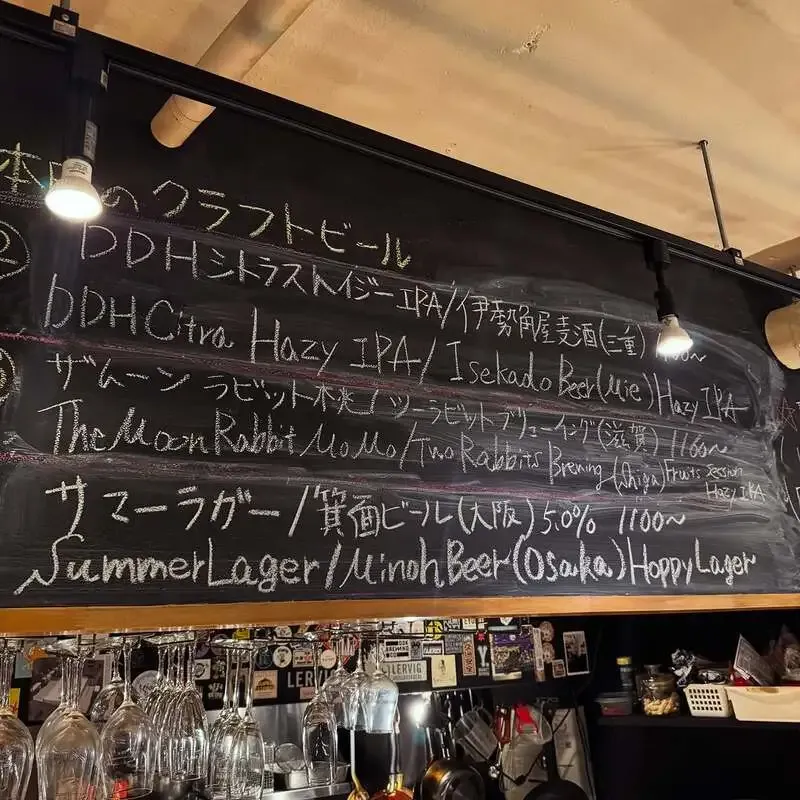 本日のクラフトビール
② DDHシトラスヘイジーIPA/伊勢角屋麦酒(三重)
DDH Citra Hazy IPA/Isekado Beer(Mie)Hazy IPA
ザムーンラビット/ツーラビットブリューイング(滋賀) 1100~
The Moon Rabbit MoMo/Two Rabbits Brewing(Shiga)Fruits Session Hazy IPA
サマーラガー/箕面ビール(大阪)5.0% 1100~
Summer Lager/Minoh Beer(Osaka)Hoppy Lager
LERVIG
LERVIG